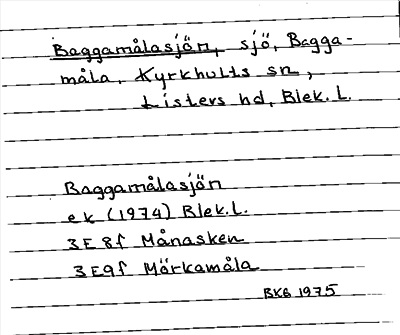 Baggamålasjön, sjö, Bagga-
måla, Kyrkhults sn,
Listers hd, Blek.l.
Baggamålasjön
ek (1974) Blek.l.
3E 8f Månasken
3E9f Mörkamåla
BKG 1975